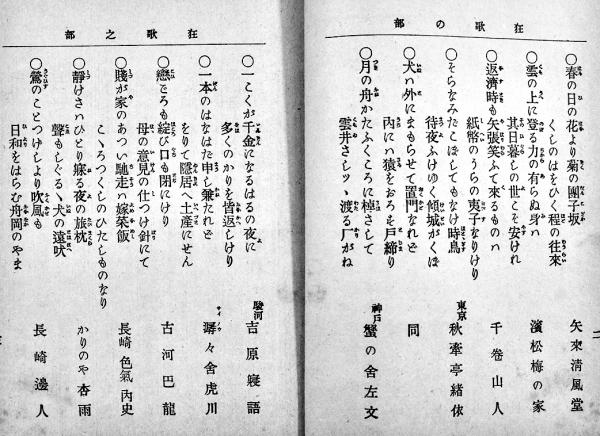 狂歌の部
○春の日の花より菊の團子坂
くしのはをひく程の往來
矢來清風堂
○雲の上に登る力の有らぬ身ハ
其日暮しの世こそ安けれ
濱松梅の家
○返濟時も矢張笑ふて來るものハ
紙幣のうらの夷子なりけり
千卷山人
○そらなみたこぼしてもなけ時鳥
待夜ふけゆく傾城がくぼ
東京
秋牽亭緒依
○犬ハ外にまもらせて置門なれど
内にハ猿をおろす戸締り
同
○月の舟かたふくころに極さして
雲井さしつゝ渡る厂がね
神戸
蟹の舍左文
狂歌之部
○一こくが千金になるはるの夜に
多くのかりを皆返しけり
駿河
吉原寢語
○一本のはなはた申し兼たれど
をりて隱居へ土產にせん
々舍虎川
○戀ごろも綻び口も閉にけり
母の意見の仕つけ針にて
古河巴龍
○賤が家のあつい馳走ハ嫁菜飯
こゝろつくしのひたしものなり
長崎色氣内史
○靜けさハひとり寐る夜の旅枕
聲もしぐるゝ犬の遠吠
かりのや杏雨
○鶯のことつけしより吹風も
日和をはらむ舟岡のやま
長崎邊人